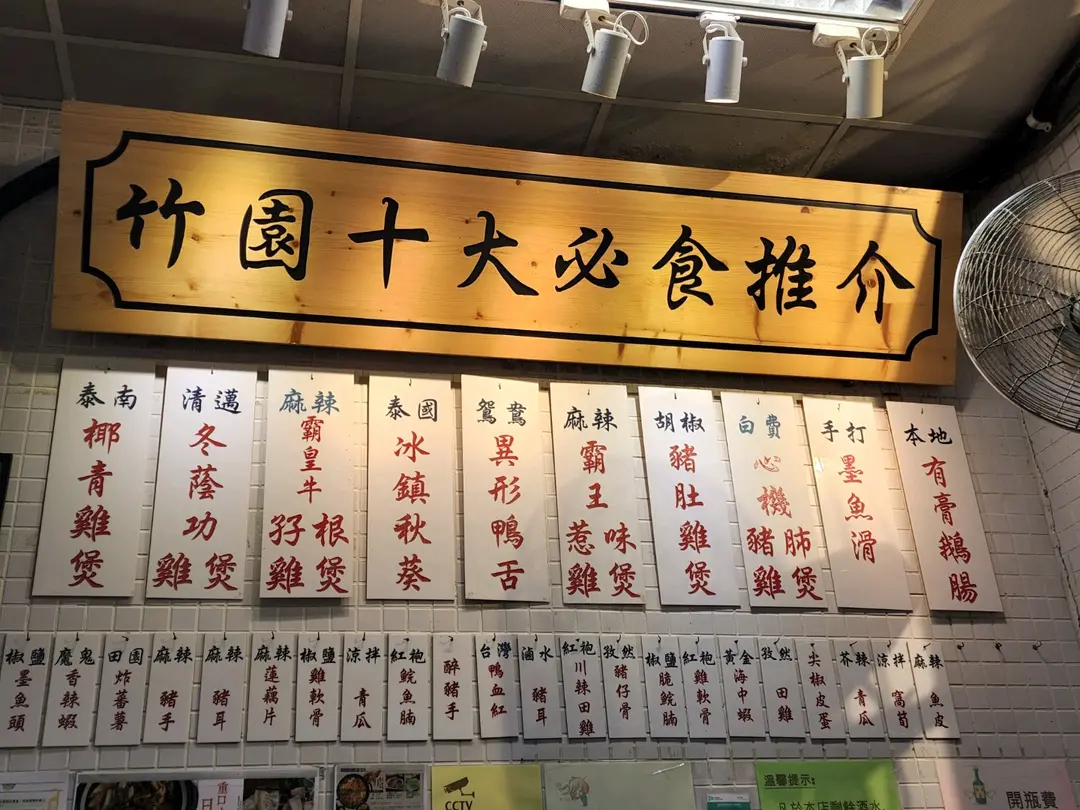 竹園十大必食推介
泰南椰青雞煲
清邁冬蔭功雞煲
麻辣霸皇牛孖根雞煲
泰國冰鎮秋葵
鴛鴦異形鴨舌
麻辣霸王惹味雞煲
胡椒豬肚雞煲
白費心機豬肺雞煲
手打墨魚滑
本地有膏鵝腸
椒鹽墨魚頭
魔鬼香辣蝦
田園炸蕃薯
麻辣豬手
麻辣豬耳
麻辣蓮藕片
椒鹽雞軟骨
涼拌青瓜
紅袍鯇魚腩
醉豬手
台灣鴨血紅
滷水豬耳
紅袍川辣田雞
孜然豬仔骨
椒鹽脆鯇腩
紅袍雞軟骨
黃金海中蝦
孜然田雞
尖椒皮蛋
芥辣青瓜
涼拌窩筍
麻辣魚皮
重口
CCTV
溫馨提示:
凡於本店剩餘酒水
開瓶費